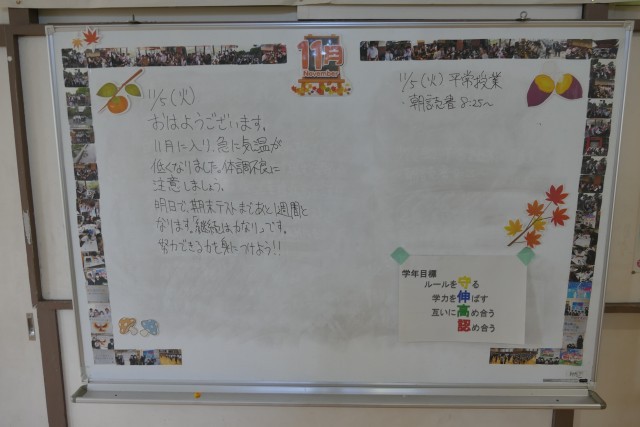 11月
November
11/5(火)
おはようございます。
11月に入り、急に気温が
低くなりました。体調不良に
注意しましょう。
明日で、期末テストまであと1週間と
なります。「継続は力なり」です。
努力できる力を身につけよう!!
11/5(火) 平常授業
・朝読書 8:25～
学年目標
ルールを守る
学力を伸ばす
互いに高め合う
認め合う